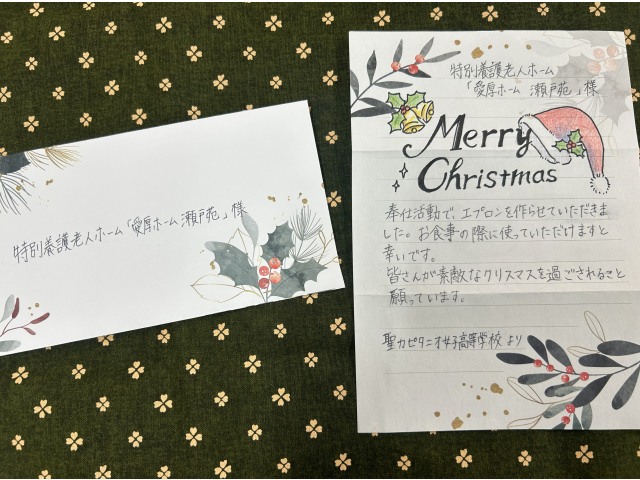 特別養護老人ホーム「愛厚ホーム 瀬戸苑」様
特別養護老人ホーム
「愛厚ホーム 瀬戸苑」様
Merry
Christmas
奉仕活動で、エプロンを作らせていただきま
した。お食事の際に使っていただけますと
幸いです。
皆さんが素敵なクリスマスを過ごされること
願っています。
聖カピタニオ女子高等学校より